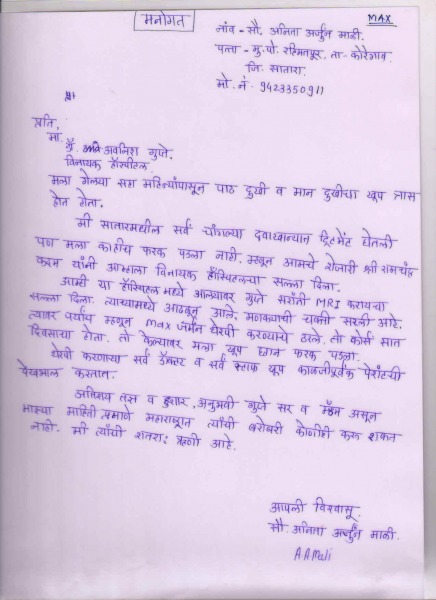 मनोगत
MAX
नांव - सौ. अनिता अर्जुन माळी.
पत्ता - मु.पो. रहिमतपूर, ता - कोरेगाव
जि. सातारा.
मो. नं. 9423350911
प्रति,
मा.
डॉ. अवनिश गुप्ते.
विनायक हॉस्पिटल.
मला गेल्या सहा महिन्यांपासून पाठ दुखी व मान दुखीचा खूप त्रास
होत होता.
मी सातारमधील सर्व चांगल्या दवाखान्यात ट्रिटमेंट घेतली
पण मला काहीच फरक पडला नाही. म्हणून आमचे शेजारी श्री रामचंद्र
कदम यांनी आम्हाला विनायक हॉस्पिटलचा सल्ला दिला.
आम्ही या हॉस्पिटलमध्ये आल्यावर गुप्ते सरांनी MRI करायचा
सल्ला दिला. त्याच्यामध्ये आढळून आले. मणक्याची चकती सरली आहे.
त्यावर पर्याय म्हणून max जर्मन थेरपी करण्याचे ठरले. तो कोर्स सात
दिवसाचा होता. तो केल्यावर मला खूप छान फरक पडला.
थेरपी करणाऱ्या सर्व डॉक्टर व सर्व स्टाफ खूप काळजीपूर्वक पेशंटची
देखभाल करतात.
अतिशय तज्ञ व हुशार, अनुभवी गुप्ते सर व मॅडम असून
माझ्या माहिती प्रमाणे महाराष्ट्रात त्यांची बरोबरी कोणीही करू शकत
नाही. मी त्यांची शतशः ऋणी आहे.
आपली विश्वासू.
सौ. अनिता अर्जुन माळी.
A.A.Mali